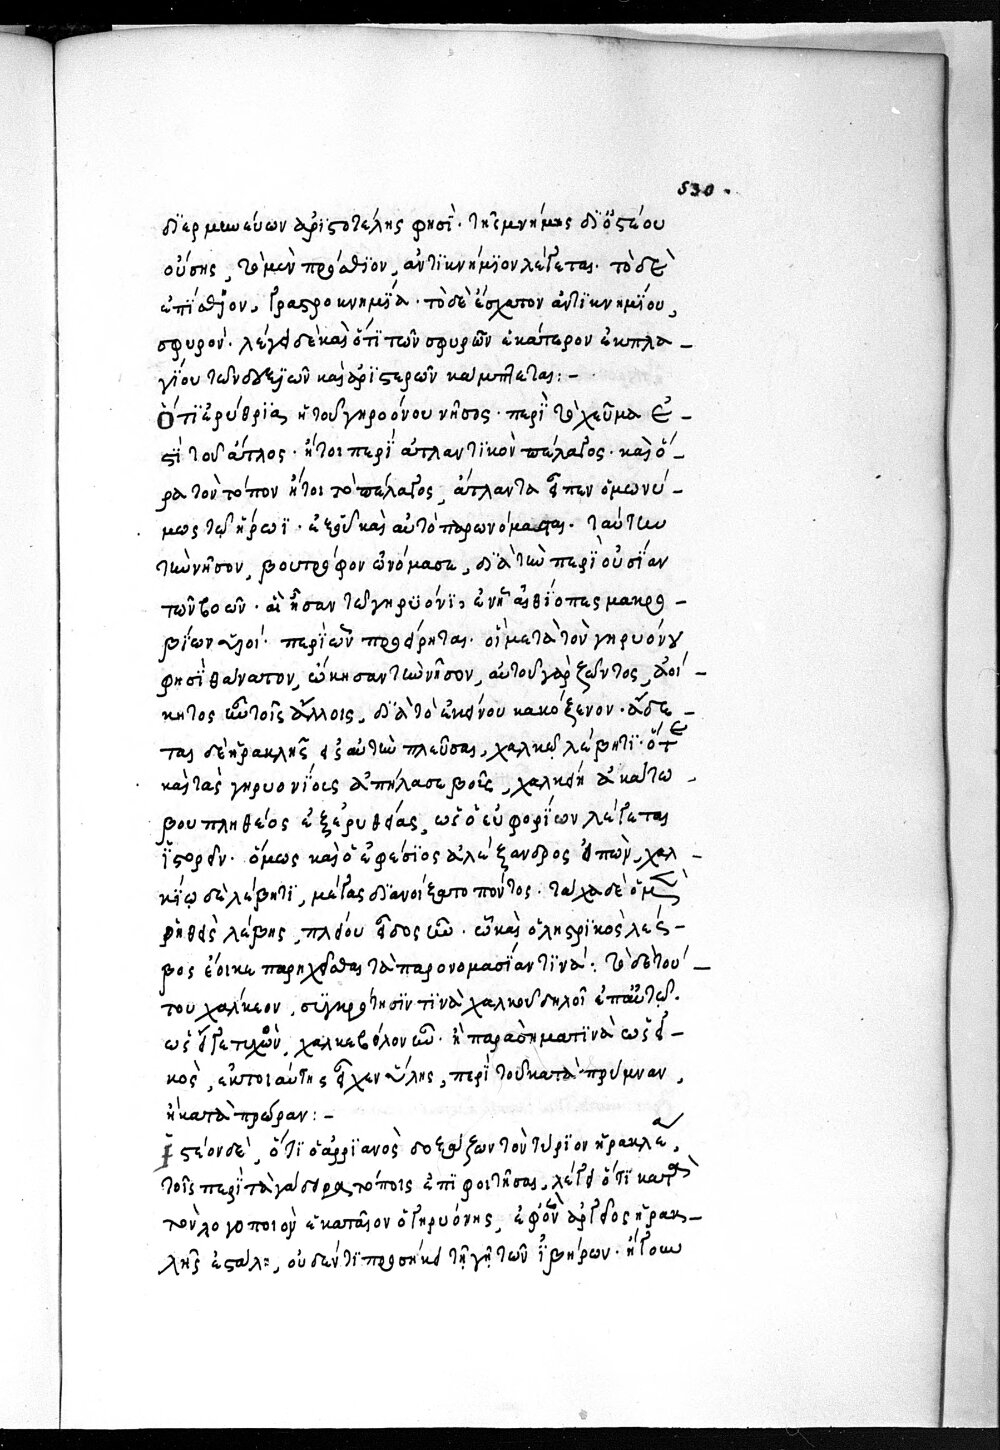 530.
διερμηνεύων ἀριστοτέλης φησί· τῆς κνήμης διοστέου
οὔσης, τὸ μὲν πρόσθιον, ἀντικνήμιον λέγεται· τὸ δὲ
ὀπίσθιον, γαστροκνημία· τὸ δὲ ἔσχατον ἀντικνημίου,
σφυρόν· λέγει δὲ καὶ ὅτι τῶν σφυρῶν ἑκάτερον ἐκ πλα –
γίου τῶν δεξιῶν καὶ ἀριστερῶν κάμπτεται: –
Ὅτι ἐρύθεια, ἡ τοῦ γηρυόνου νῆσος· περὶ τὸ χεῦμα ἐ –
στὶ τοῦ ἄτλαντος· ἤτοι περὶ ἀτλαντικὸν πέλαγος· καὶ ὅ –
ρα τὸν τόπον ἤτοι τὸ πέλαγος, ἄτλαντα εἶπεν ὁμωνύ –
μως τῷ ἥρωϊ· ἐξ οὗ καὶ αὐτὸ παρωνόμασται· ταύτην
τὴν νῆσον, βουτρόφον ὠνόμασε, διὰ τὴν περὶ οὐσίαν
τῶν βοῶν· αἳ ἦσαν τῷ γηρυόνι, ἐν ᾗ αἰθίοπες μακρό –
βιοι· περὶ ὧν προείρηται· οἳ μετὰ τὸν γηρυόνου
φησὶ θάνατον, ᾤκησαν τὴν νῆσον, αὐτοῦ γὰρ ζῶντος, ἀοί –
κητος ἦν τοῖς ἄλλοις, διὰ τὸ ἐκείνου κακόξενον· ᾄδε –
ται δὲ ἡρακλῆς εἰς αὐτὴν πλεῦσαι, χαλκῷ λέβητι· ὅτε
καὶ τὰς γηρυονίδας ἀπήλασε βοῦς, χαλκείῃ ἀκάτῳ
βουπληθέος ἐξ ἐρυθείας, ὡς ὁ εὐφορίων λέγεται
ἱστορεῖν· ὅμως καὶ ὁ ἐφέσιος ἀλέξανδρος εἰπὼν, χαλ –
κείῳ δὲ λέβητι, μέγας διενήξατο πόντος· τάχα δὲ ὁ
ῥηθεὶς λέβης, πλοίου εἶδος ἦν· ᾧ καὶ ὁ λέσ –
βος ἔοικε παρηχεῖσθαι κατὰ παρονομασίαν τινά· τὸ δὲ τού –
του χάλκεον, συγκρότησίν τινα χαλκοῦ δηλοῖ ἐπ' αὐτῷ.
ὡς εἴγε τυχὸν, χαλκέμβολον ἦν· ἢ παράσημά τινα ὡς εἰ –
κὸς, ἐκ τοιαύτης εἶχεν ὕλης, περί που κατὰ πρύμναν,
ἢ κατὰ πρῶραν: –
Ἰστέον δὲ, ὅτι ὁ ἀρριανὸς δοξάζων τὸν τύριον ἡρακλέα,
τοῖς περὶ τὰ γάδειρα τόποις ἐπιφοιτῆσαι, λέγει ὅτι καθὰ
τὸν λογοποιὸν ἑκαταῖον ὁ γηρυόνης, ἐφ' ὃν ἀργεῖος ἡρακ –
λῆς ἐστάλη, οὐδέν τι προσήκει τῇ γῇ τῶν ἰβήρων· ἤγουν